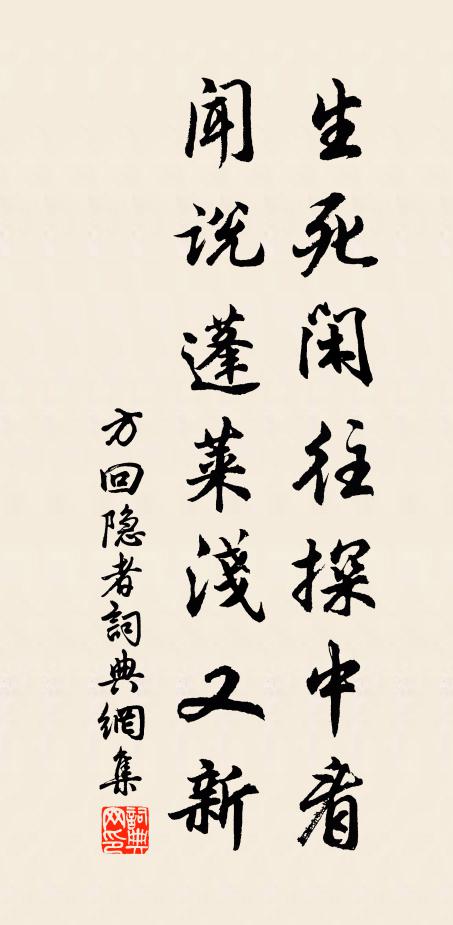 生死闲往探中看
闻说蓬莱淺又新
方回隐者詞典網集
詞典网印